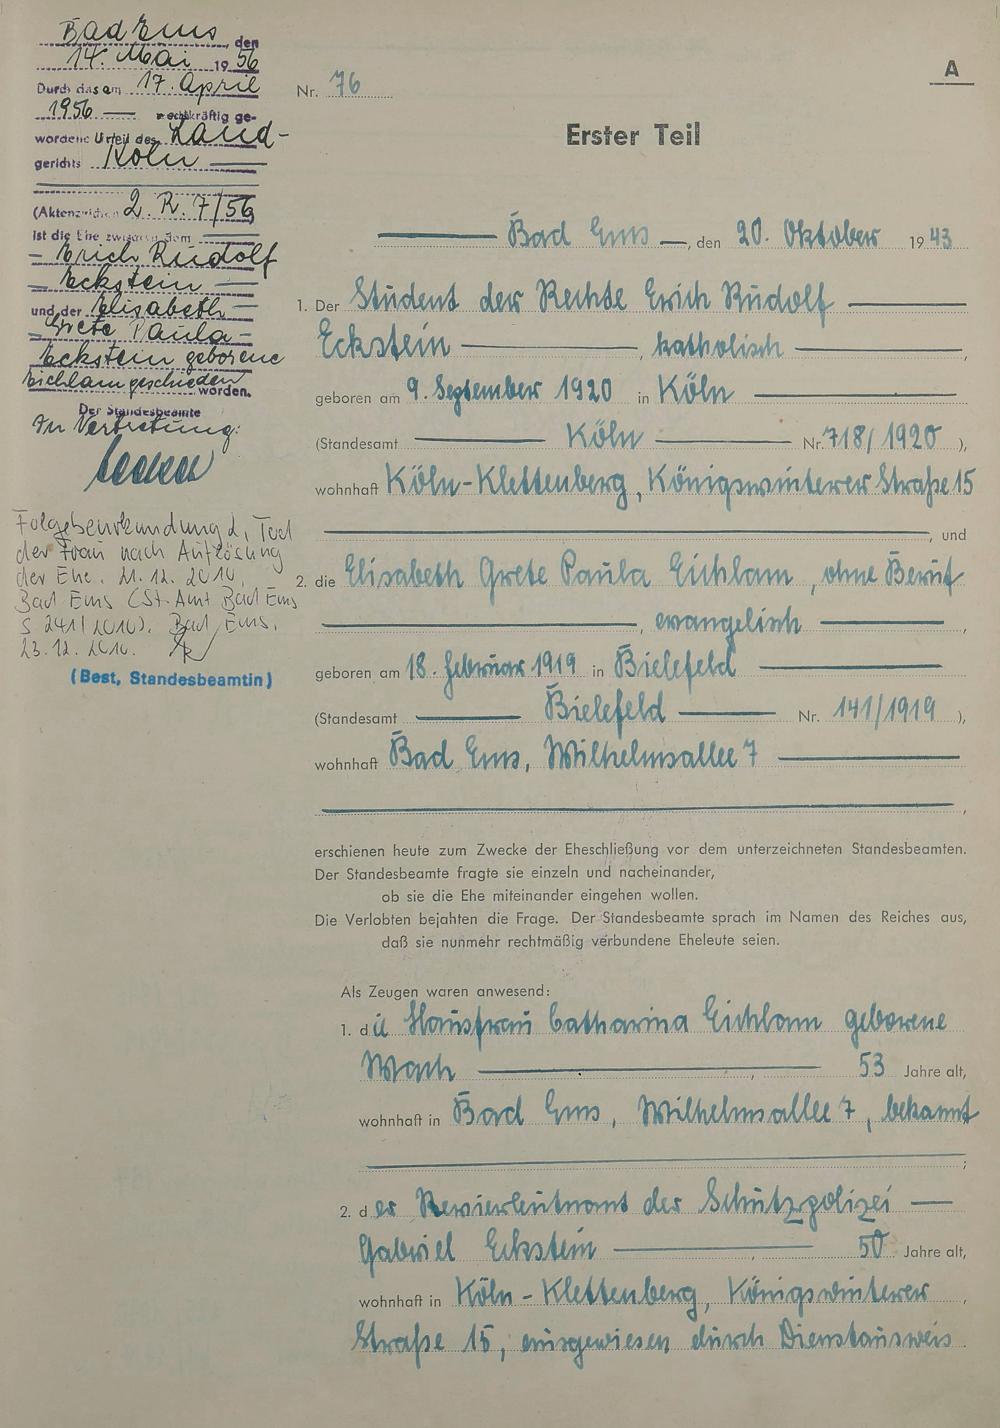 Bad Ems, den
14. Mai 1956
Durch das am 17. April
1956 — rechtskräftig ge-
wordene Urteil des Land-
gerichts Köln
(Aktenzeichen 2. R. 7/56)
ist die Ehe zwischen dem
Erich Rudolf
Eckstein
und der Elisabeth
Grete Paula
Eckstein geborene
Eichlam geschieden
worden.
Der Standesbeamte
In Vertretung:
Folgebeurkundung 2, Tod
der Frau nach Auflösung
der Ehe. 21.12.2010,
Bad Ems (St.Amt Bad Ems
S 241/2010). Bad Ems,
23.12.2010.
(Best, Standesbeamtin)
A
Nr. 76
Erster Teil
Bad Ems —, den 20. Oktober 1943
1. Der Student der Rechte Erich Rudolf
Eckstein —, katholisch —,
geboren am 9. September 1920 in Köln
(Standesamt — Köln — Nr. 718/1920 ),
wohnhaft Köln-Klettenberg, Königswinterer Straße 15
, und
2. die Elisabeth Grete Paula Eichlam, ohne Beruf
—, evangelisch —,
geboren am 18. Februar 1919 in Bielefeld
(Standesamt — Bielefeld — Nr. 141/1919 ),
wohnhaft Bad Ems, Wilhelmsallee 7
,
erschienen heute zum Zwecke der Eheschließung vor dem unterzeichneten Standesbeamten.
Der Standesbeamte fragte sie einzeln und nacheinander,
ob sie die Ehe miteinander eingehen wollen.
Die Verlobten bejahten die Frage. Der Standesbeamte sprach im Namen des Reiches aus,
daß sie nunmehr rechtmäßig verbundene Eheleute seien.
Als Zeugen waren anwesend:
1. die Hausfrau Catharina Eichlam geborene
Wach — 53 Jahre alt,
wohnhaft in Bad Ems, Wilhelmsallee 7, bekannt
;
2. der Revierleutnant der Schutzpolizei —
Gabriel Eckstein — 50 Jahre alt,
wohnhaft in Köln-Klettenberg, Königswinterer
Straße 15, ausgewiesen durch Dienstausweis.